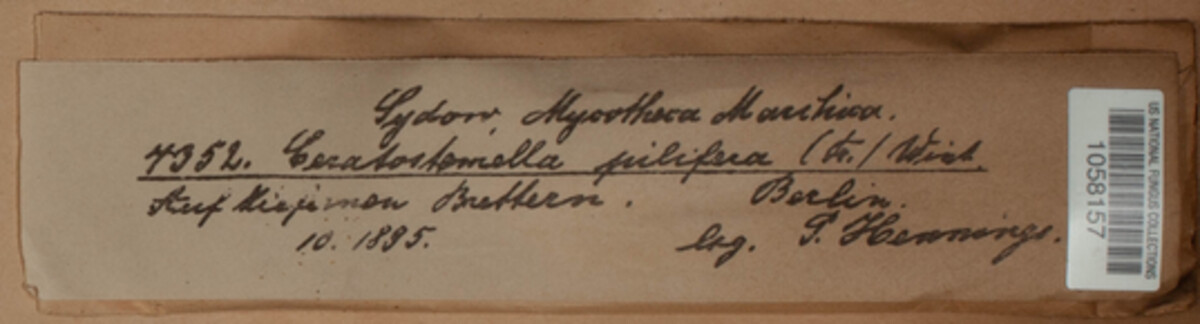 Sydow, Mycotheca Marchica.
4352. Ceratostomella pilifera (Fr.) Wint.
Auf Brettern. Berlin.
10. 1895. leg. P. Hennings.
US NATIONAL FUNGUS COLLECTIONS
1058157